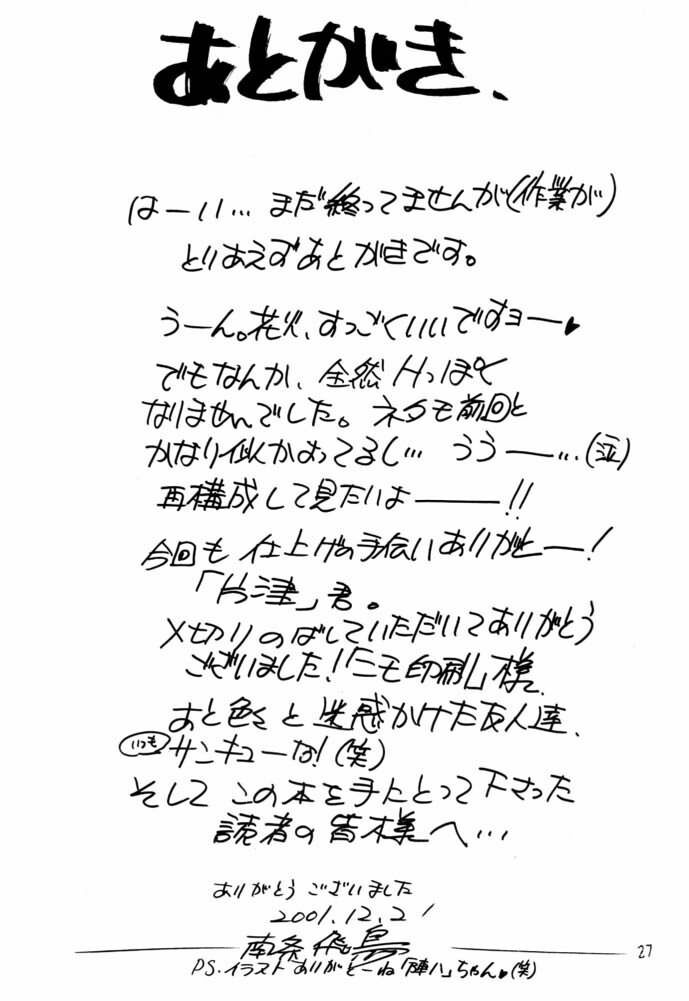 あとがき、
はーい…まだ終ってませんが(作業が)
とりあえずあとがきです。
うーん。花火、すっごくいいですョー♥
でもなんか、全然Hっぽく
なりませんでした。ネタも前回と
かなり似かよってるし… うう──…(泣)
再構成して見たいよ───!!
今回も仕上げの手伝いありがとー!
「片津」君。
〆切りのばしていただいてありがとう
ございました!「ニモ印刷」様、
あと色々と迷惑かけた友人達、
いつもサンキューな!(笑)
そしてこの本を手にとって下さった
読者の皆様へ…
ありがとうございました
2001.12.21
南条飛鳥
27
P.S.イラストありがとーね「陣八」ちゃん♥(笑)